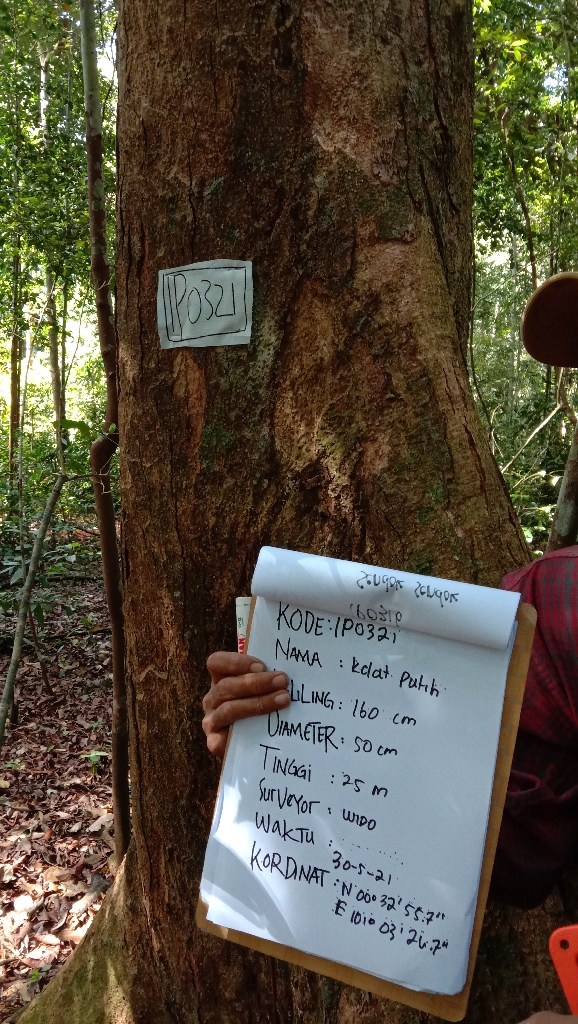 IP0321
KODE: IP0321
NAMA : Kelat Putih
LILING: 160 cm
DIAMETER: 50 cm
TINGGI : 25 m
SURVEYOR : WIDO
WAKTU :
30-5-21
KORDINAT: N 00° 32' 55.7"
E 101° 03' 26.7"